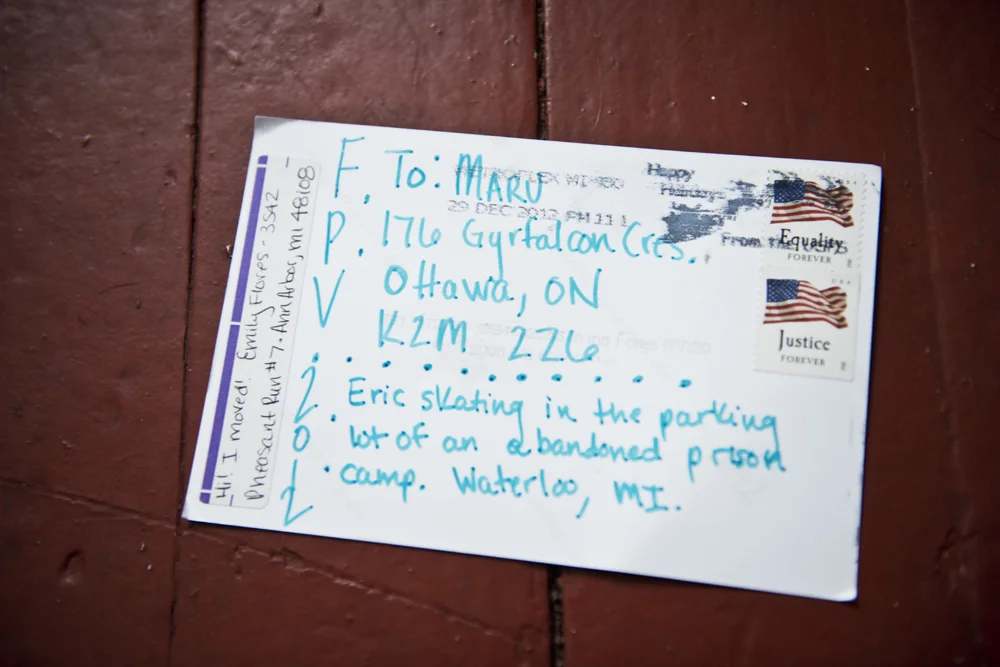 Hi! I moved! Emily Flores - 3542
Pheasant Run #7 - Ann Arbor, MI 48108
F. To: MARU
P. 176 Gyrfalcon Cres.
V Ottawa, ON
K2M 2Z6
2 Eric skating in the parking
0 lot of an abandoned prison
1 camp. Waterloo, MI.
2
METROPLEX MI 480
29 DEC 2012 PM 11 L
Happy
Holidays
From the USPS
Equality
FOREVER
USA
Justice
FOREVER